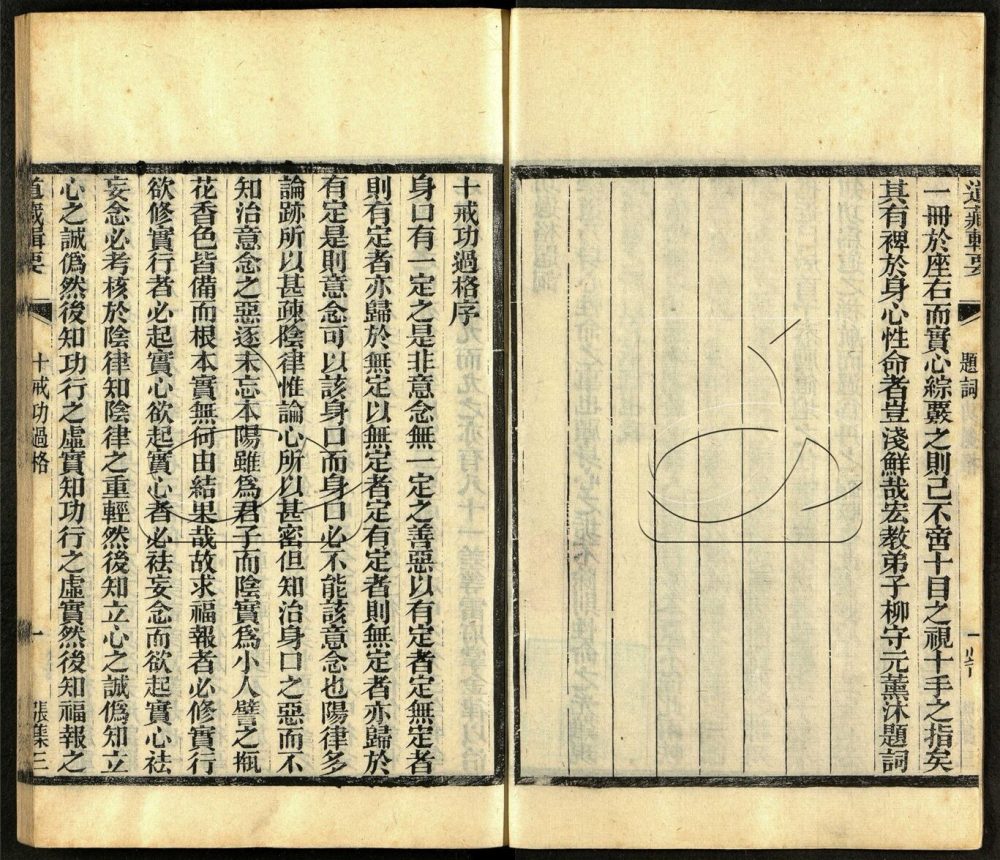 道藏輯要
題詞
一册於座右而實心綜覈之則己不啻十目之視十手之指矣
其有裨於身心性命者豈淺鮮哉宏教弟子柳守元薰沐題詞
十戒功過格序
身口有一定之是非意念無一定之善惡以有定者定無定者
則有定者亦歸於無定以無定者定有定者則無定者亦歸於
有定是則意念可以該身口而身口必不能該意念也陽律多
論跡所以甚疎陰律惟論心所以甚密但知治身口之惡而不
知治意念之惡逐末忘本陽雖爲君子而陰實爲小人譬之瓶
花香色皆備而根本實無何由結果哉故求福報者必修實行
欲修實行者必起實心欲起實心者必祛妄念而欲起實心祛
妄念必考核於陰律知陰律之重輕然後知立心之誠僞知立
心之誠僞然後知功行之虛實知功行之虛實然後知福報之
道藏輯要
十戒功過格
一
張集三